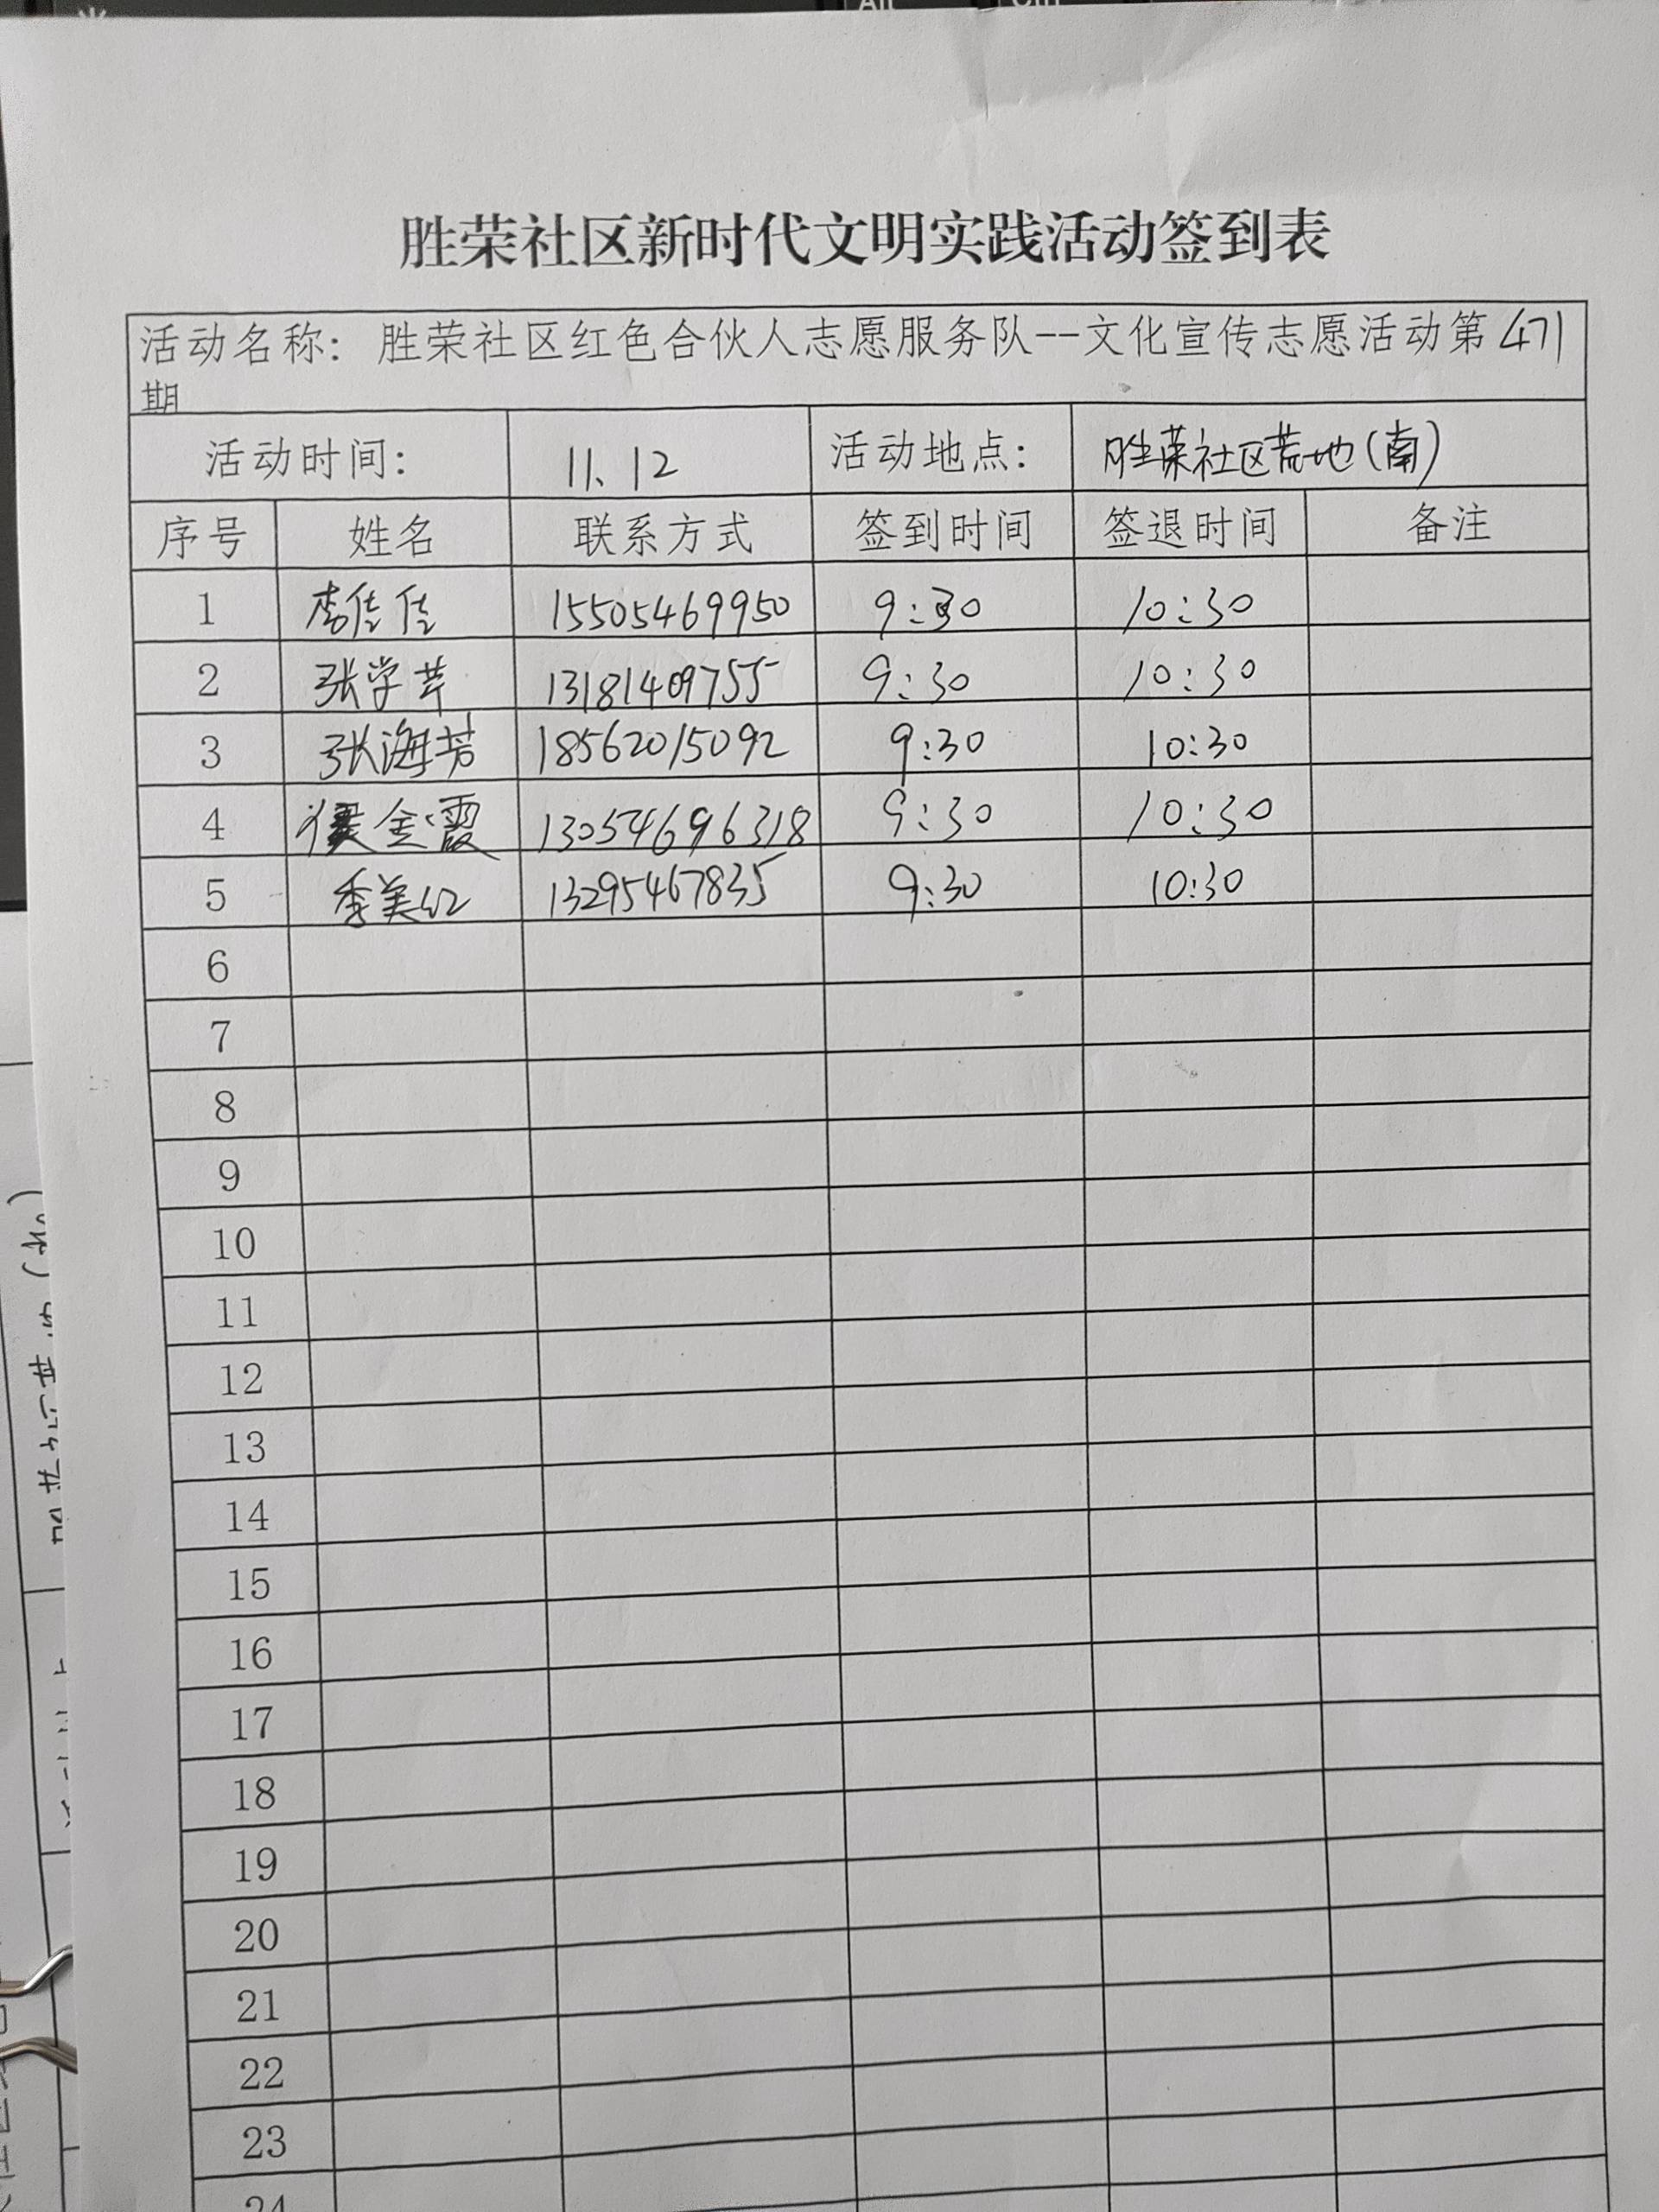 胜荣社区新时代文明实践活动签到表
活动名称: 胜荣社区红色合伙人志愿服务队--文化宣传志愿活动第471
期
活动时间: 11、12 活动地点: 胜荣社区荒地(南)
序号 姓名 联系方式 签到时间 签退时间 备注
1 李佳佳 15505469950 9:30 10:30
2 张学芹 13181409755 9:30 10:30
3 张海芳 18562015092 9:30 10:30
4 侯金霞 13054696318 9:30 10:30
5 季美红 13295467835 9:30 10:30
6
7
8
9
10
11
12
13
14
15
16
17
18
19
20
21
22
23
24